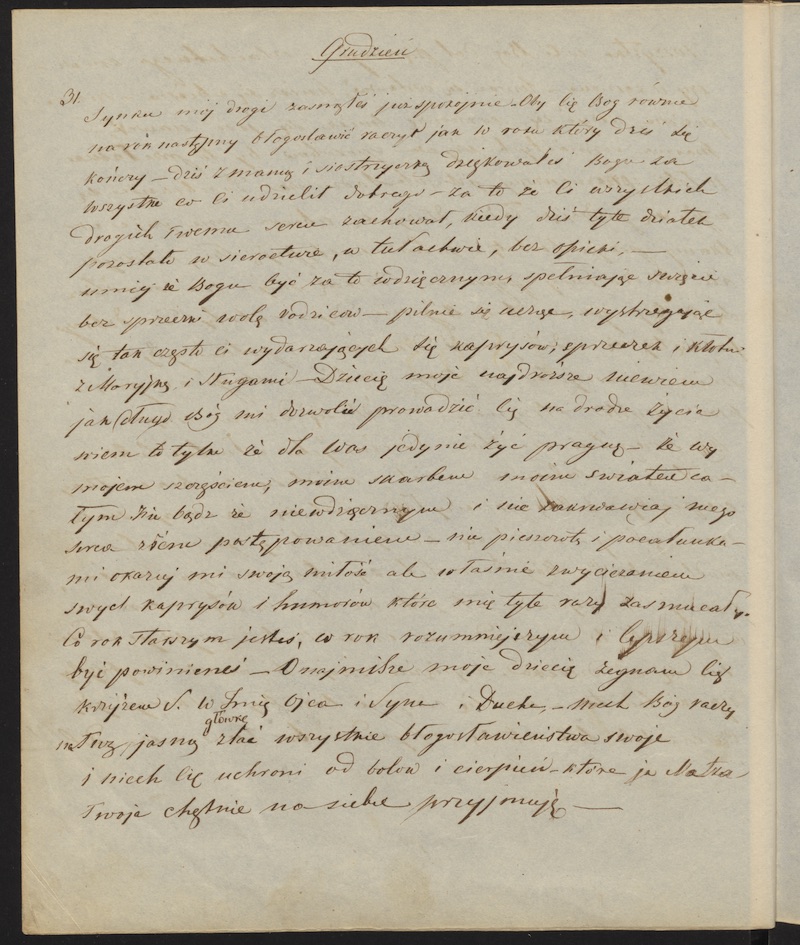 Grudzień
31.
Synku mój drogi zasnąłeś już spokojnie. Oby Cię Bóg równie
na rok następny błogosławić raczył jak w roku który dziś się
kończy – dziś z mamą i siostrzyczką dziękowałeś Bogu za
wszystko co Ci udzielił dobrego – za to że Ci wszystkich
drogich twemu sercu zachował, kiedy dziś tyle dziatek
pozostało w sieroctwie, w tułactwie, bez opieki, –
umiej że Bogu być za to wdzięcznym, spełniając święcie
bez sprzeczki wolę rodziców – pilnie się ucząc, wystrzegając
się tak często ci wydarzających się kaprysów, sprzeczek i kłótni
z Maryjką i sługami – Dziecię moje najdroższe niewiem
jak długo Bóg mi dozwoli prowadzić Cię na drodze życia
wiem to tylko że dla Was jedynie żyć pragnę – że wy
mojem szczęściem, moim skarbem moim światem ca-
łym bądź że niewdzięcznym i nie zakrwawiaj mego
serca złem postępowaniem – nie pieszczotą i pocałunka-
mi okazuj mi swoją miłość ale właśnie zwyciężaniem
swych kaprysów i humorów które mię tyle razy zasmucały.
Co rok starszym jesteś, co rok rozumniejszym i lepszym
być powinieneś – O najmilsze moje dziecię żegnam Cię
krzyżem S. w Imię Ojca i Syna i Ducha, – niech Bóg raczy
na twą jasną główkę zlać wszystkie błogosławieństwa swoje
i niech Cię uchroni od bolów i cierpień – które ja Matka
Twoja chętnie na siebie przyjmuję –